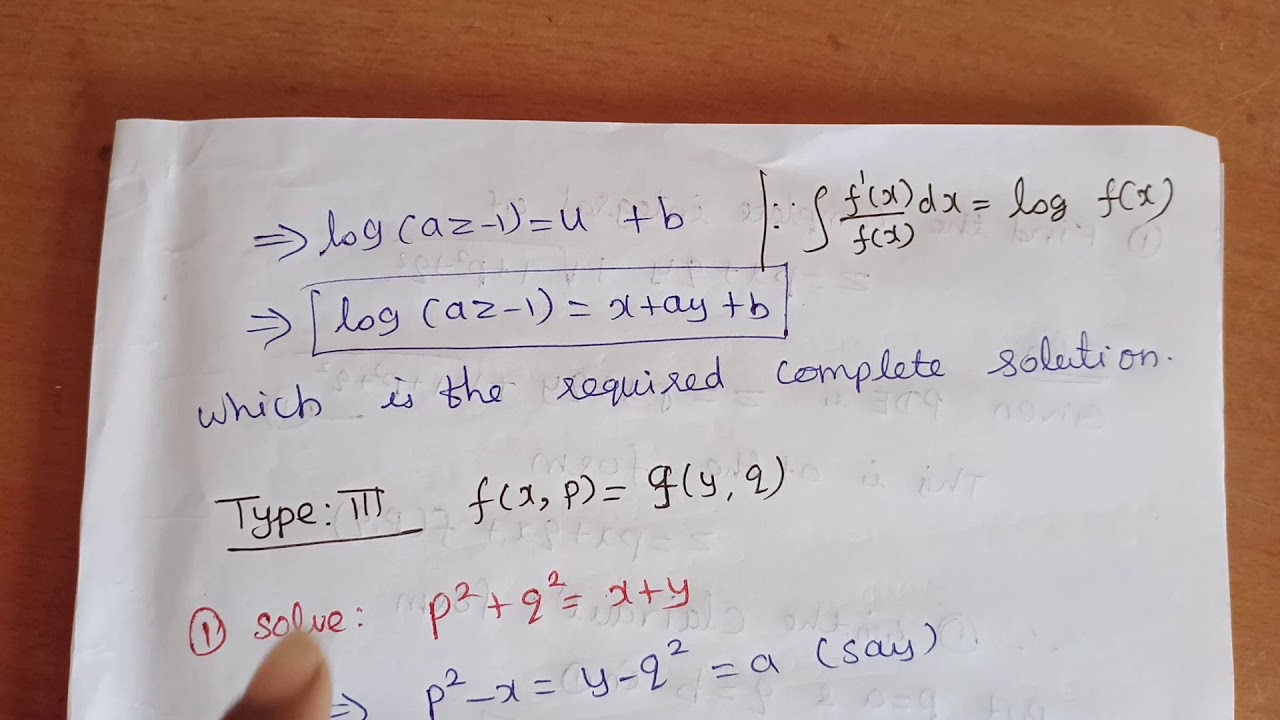 ⇒ log(az-1) = u + b | ∵ ∫ f'(x)/f(x) dx = log f(x)
⇒ log(az-1) = x+ay+b
which is the required complete solution.
Type: III f(x, p) = g(y, q)
① solve: p² + q² = x+y
⇒ p² - x = y - q² = a (say)